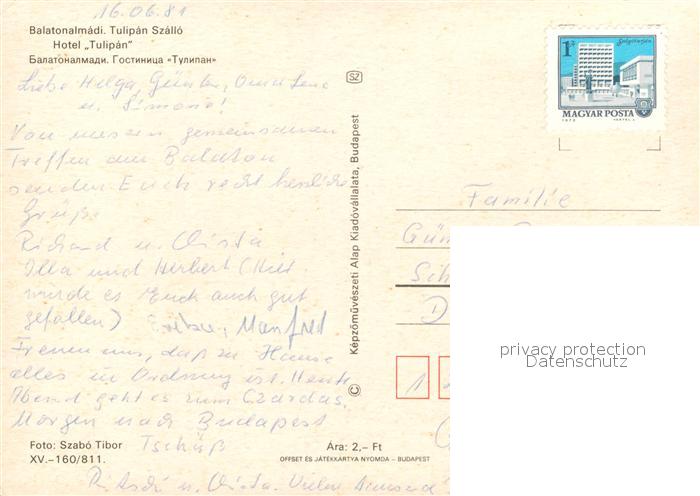 16.06.81
Balatonalmádi. Tulipán Szálló
Hotel „Tulipán”
Балатоналмади. Гостиница «Тулипан»
Liebe Helga, Günter, Oma Lene
u. Simone!
Von unserem gemeinsamen
Treffen am Balaton
senden Euch recht herzliche
Grüße
Richard u. Christa
Illa und Herbert (Hier
würde es Euch auch gut
gefallen) Manfred
Freuen uns, daß zu Hause
alles in Ordnung ist. Heute
Abend geht es zum Czardas.
Morgen nach Budapest
Tschüß
Foto: Szabó Tibor
XV.–160/811.
Ára: 2,– Ft
OFFSET ÉS JÁTÉKKÁRTYA NYOMDA – BUDAPEST
© Képzőművészeti Alap Kiadóvállalata, Budapest
SZ
1 Ft
Salgótarján
MAGYAR POSTA
Familie
Gün
Sch
D
1
privacy protection
Datenschutz